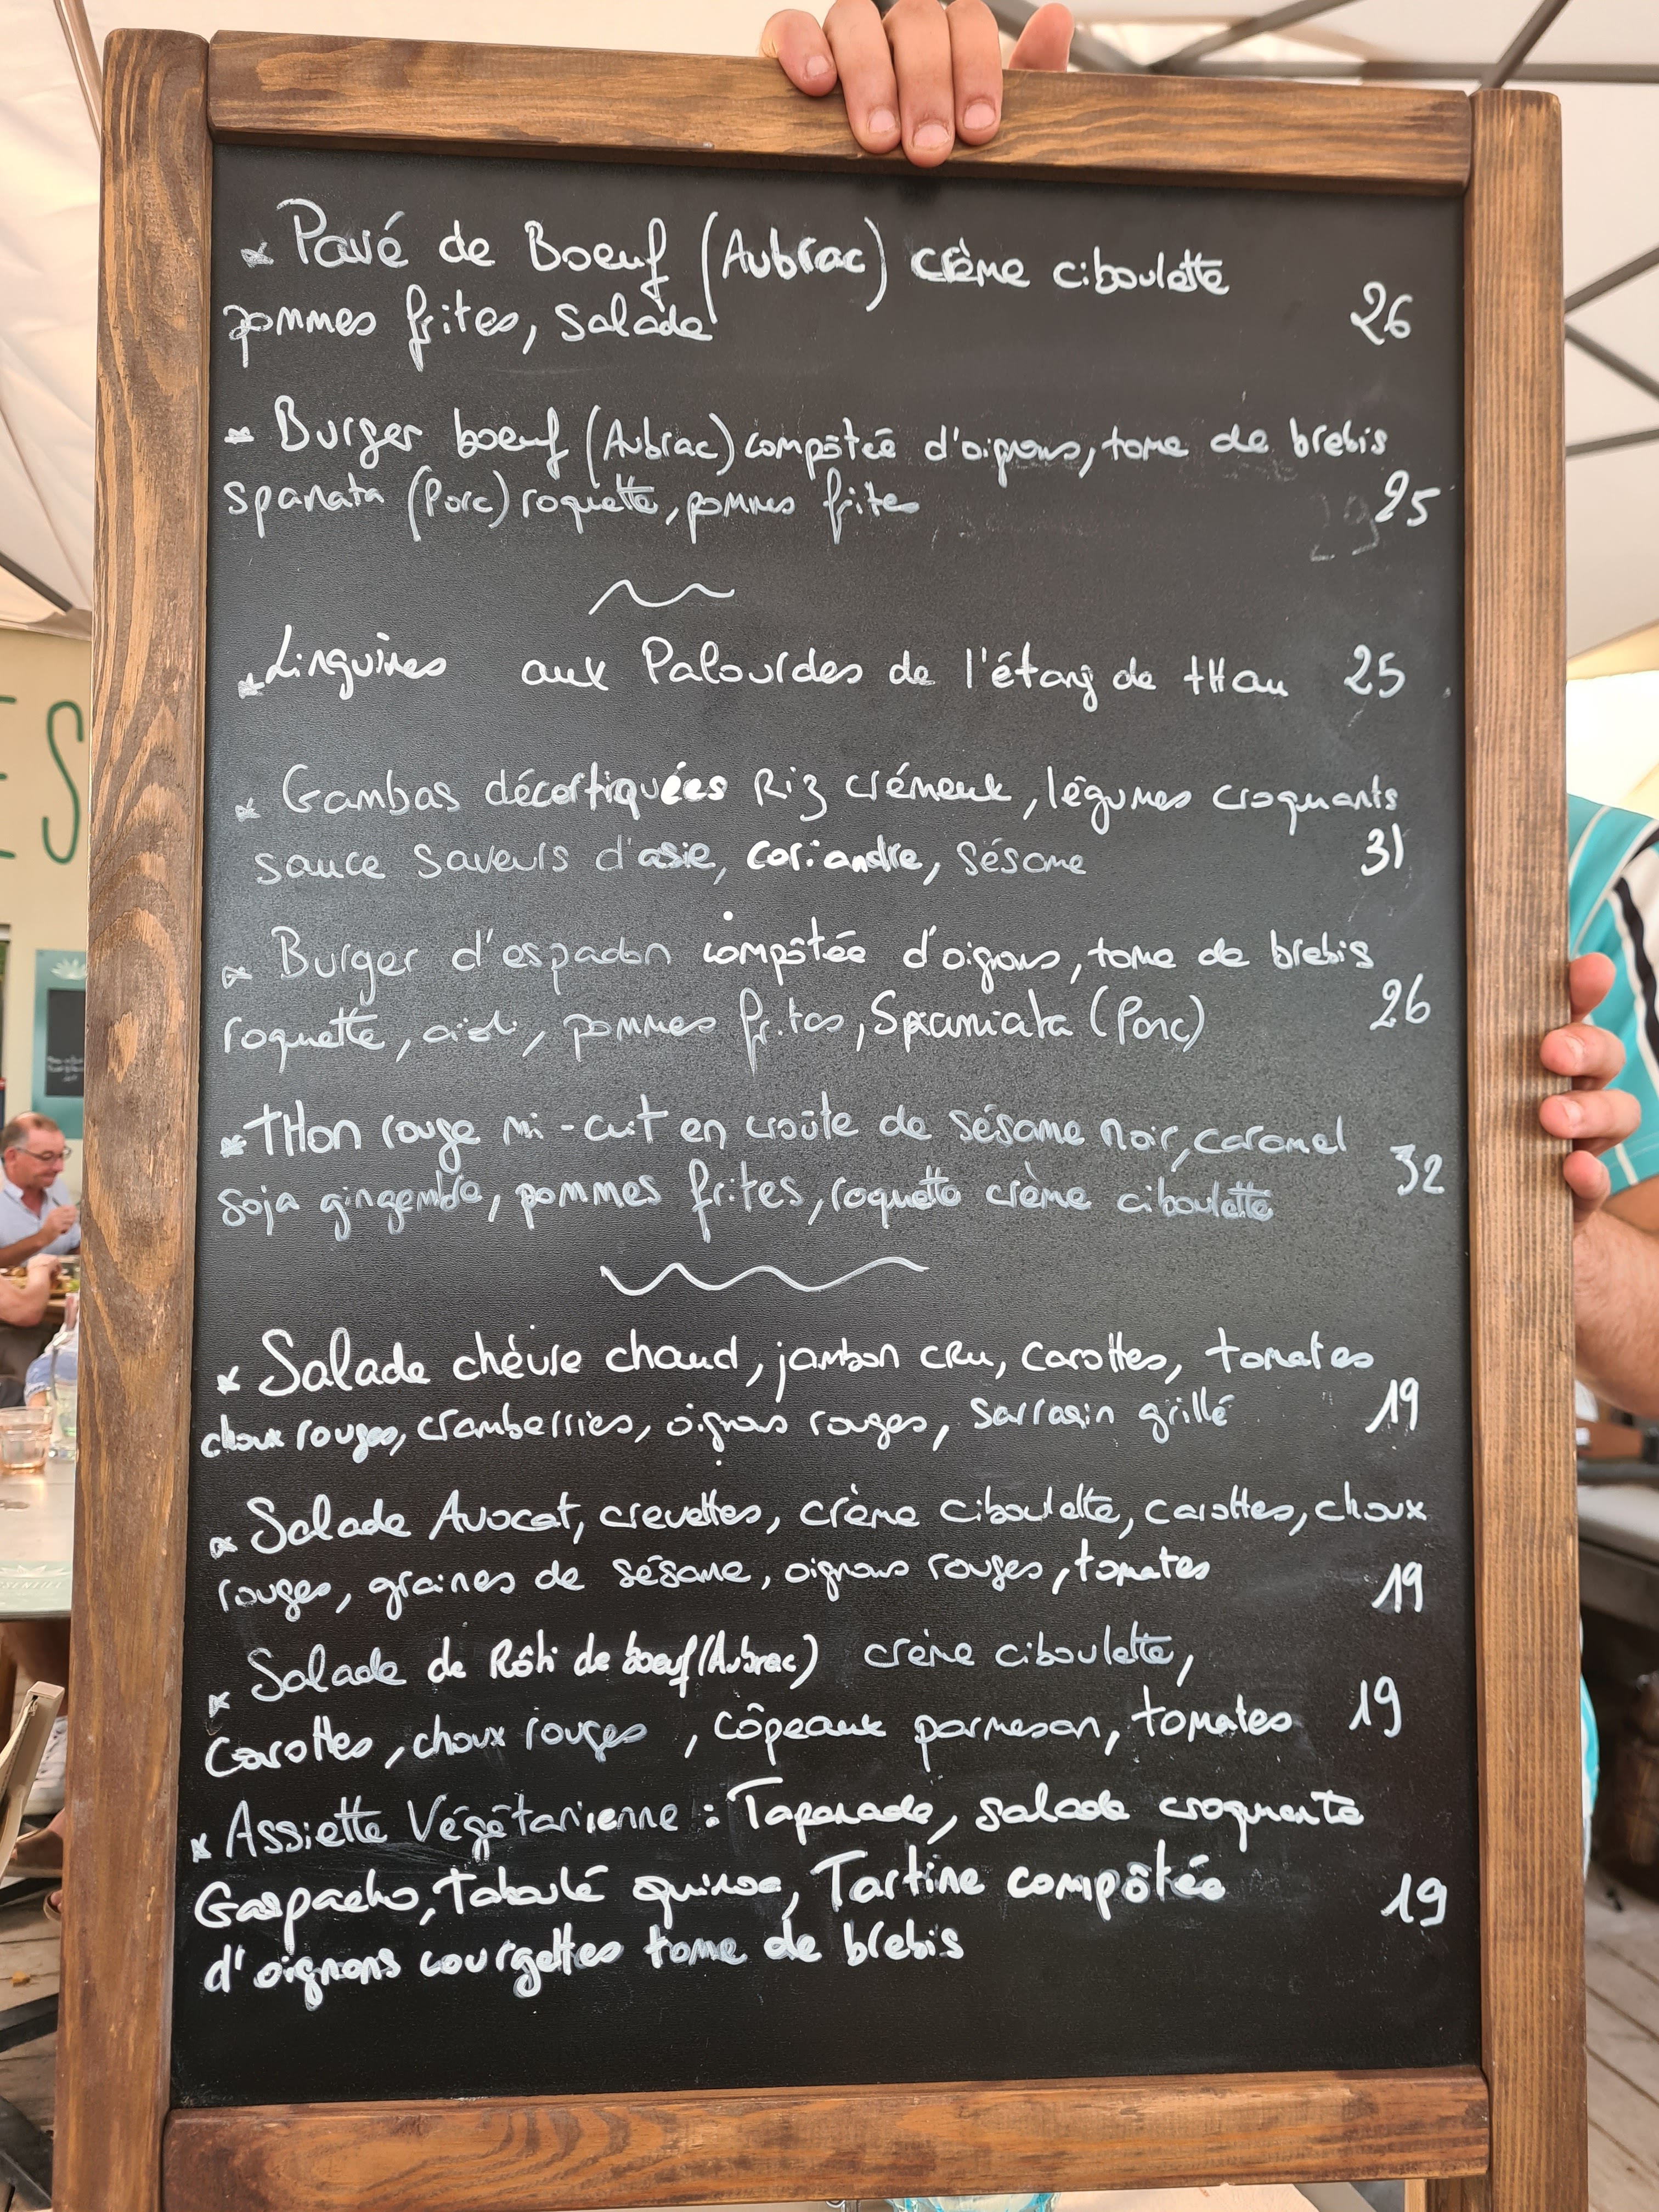 * Pavé de Boeuf (Aubrac) crème ciboulette
pommes frites, salade 26
* Burger boeuf (Aubrac) compôtée d'oignons, tome de brebis
spanata (Porc) roquette, pommes frites 25
* Linguines aux Palourdes de l'étang de tHau 25
* Gambas décortiquées Riz crémeux, légumes croquants
sauce saveurs d'asie, coriandre, sésame 31
* Burger d'espadon compôtée d'oignons, tome de brebis
roquette, aïoli, pommes frites, Spianiata (Porc) 26
* tHon rouge mi-cuit en croûte de sésame noir, caramel
soja gingembre, pommes frites, roquette crème ciboulette 32
* Salade chèvre chaud, jambon cru, carottes, tomates
choux rouges, cramberries, oignons rouges, sarrasin grillé 19
* Salade Avocat, crevettes, crème ciboulette, carottes, choux
rouges, graines de sésame, oignons rouges, tomates 19
* Salade de Rôti de boeuf (Aubrac) crème ciboulette,
Carottes, choux rouges, côpeaux parmesan, tomates 19
* Assiette Végétarienne : Tapenade, salade croquante
Gaspacho, Taboulé quinoa, Tartine compôtée
d'oignons courgettes tome de brebis 19
ES